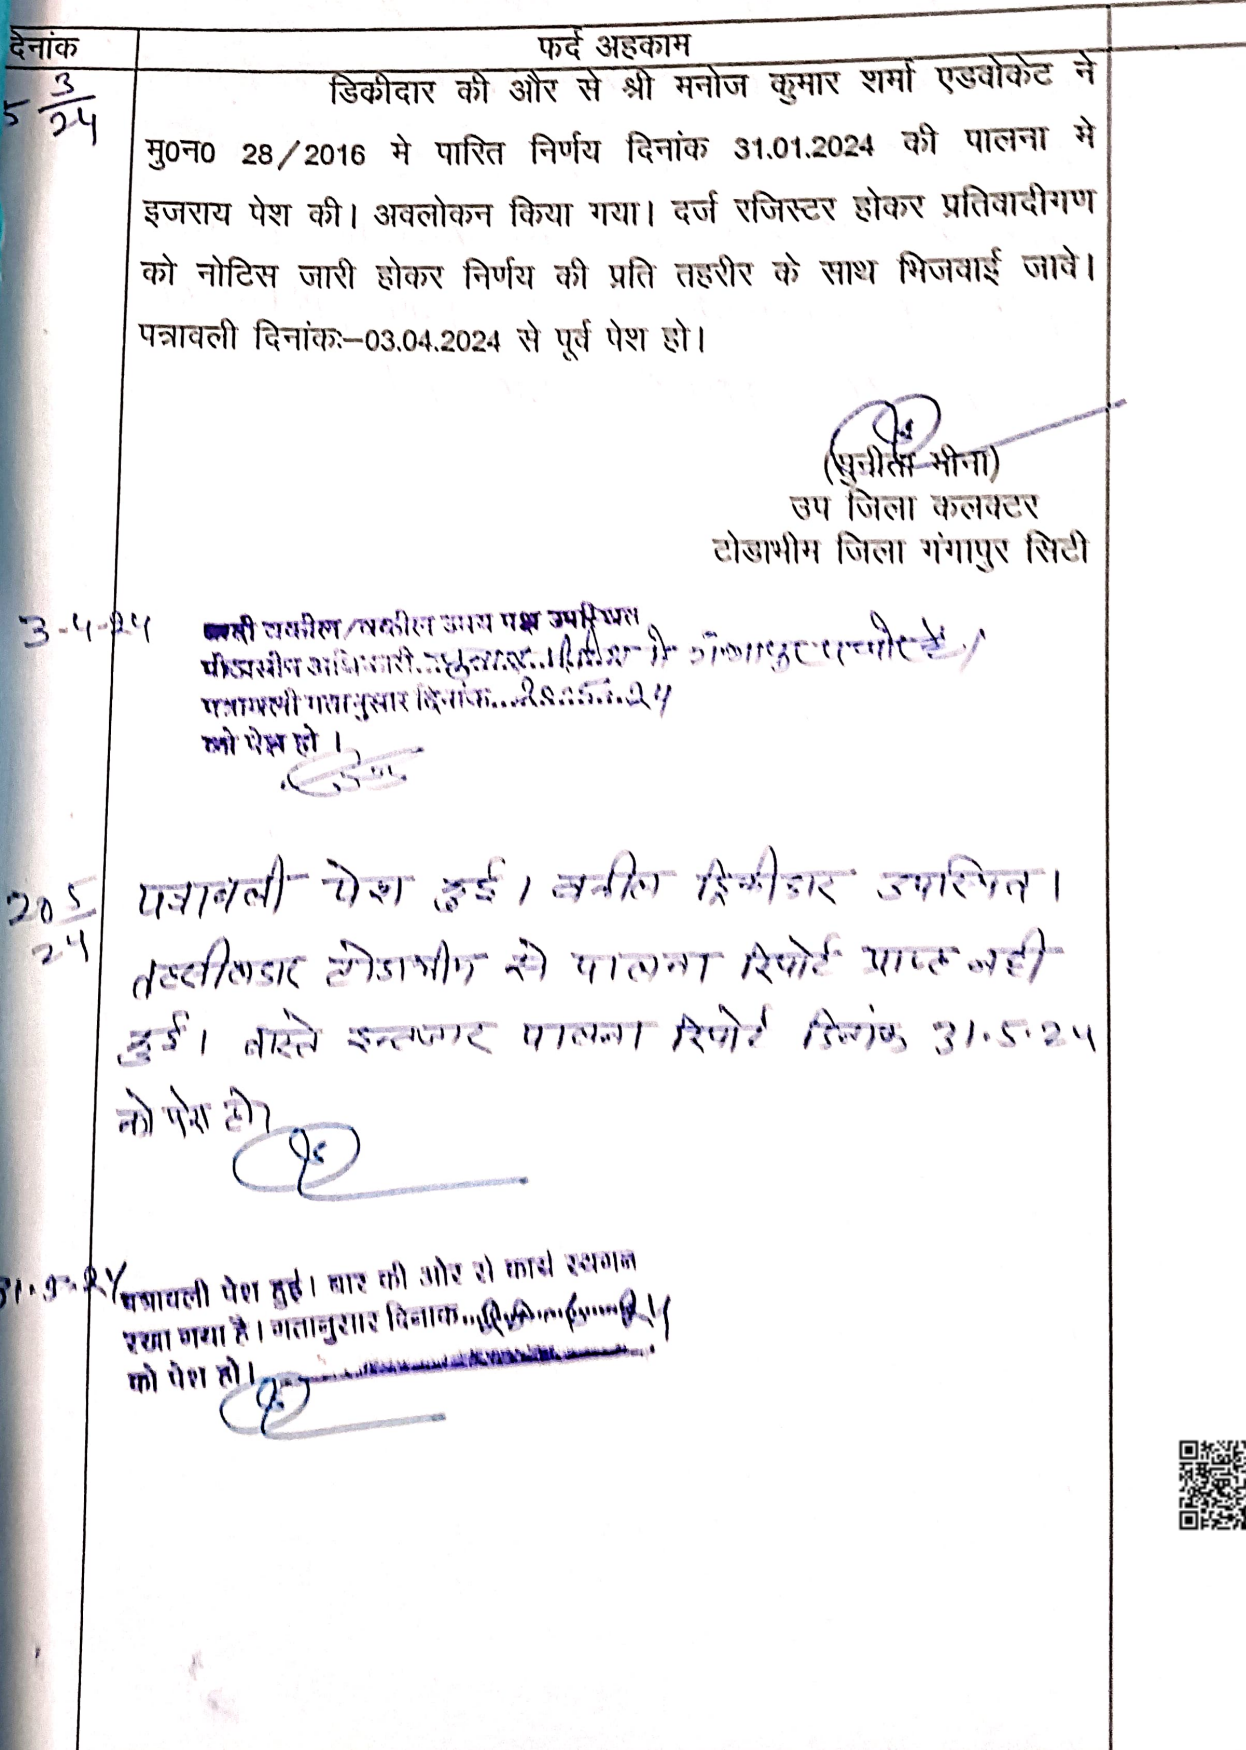 देनांक फर्द अहकाम
5 3/24 डिकीदार की और से श्री मनोज कुमार शर्मा एडवोकेट ने
मु0न0 28/2016 मे पारित निर्णय दिनांक 31.01.2024 की पालना मे
इजराय पेश की। अवलोकन किया गया। दर्ज रजिस्टर होकर प्रतिवादीगण
को नोटिस जारी होकर निर्णय की प्रति तहरीर के साथ भिजवाई जावे।
पत्रावली दिनांकः–03.04.2024 से पूर्व पेश हो।
(सुनीता मीना)
उप जिला कलक्टर
टोडाभीम जिला गंगापुर सिटी
3-4-24 वकील/वकील उभय पक्ष उपस्थित
पीठासीन अधिकारी
पत्रावली गतानुसार दिनांक 20.5.24
को पेश हो।
20 5/24 पत्रावली पेश हुई। वकील डिकीदार उपस्थित।
तहसीलदार टोडाभीम से पालना रिपोर्ट प्राप्त नही
हुई। वास्ते इन्तजार पालना रिपोर्ट दिनांक 31.5.24
को पेश हो।
31.5.24 पत्रावली पेश हुई। बार की ओर से कार्य स्थगन
रखा गया है। गतानुसार दिनांक
को पेश हो।